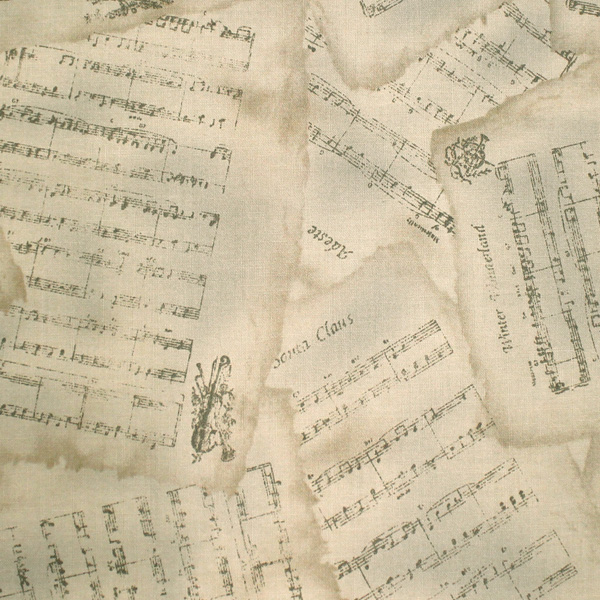 Adeste
Santa Claus
Winter Wonderland